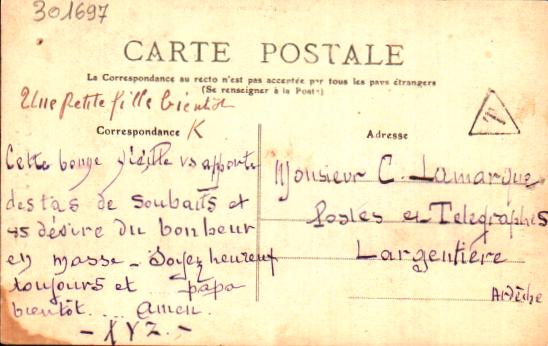 301697
CARTE POSTALE
La Correspondance au recto n'est pas acceptée par tous les pays étrangers
(Se renseigner à la Poste)
Une petite fille bientôt
K
Correspondance
Cette bonne vieille vs apporte
des tas de souhaits et
vs désire du bonheur
en masse _ Soyez heureux
toujours et ... papa
bientôt .... amen.
- XYZ. -
Adresse
Monsieur C. Lamarque
Postes et Telegraphes
Largentière
Ardèche